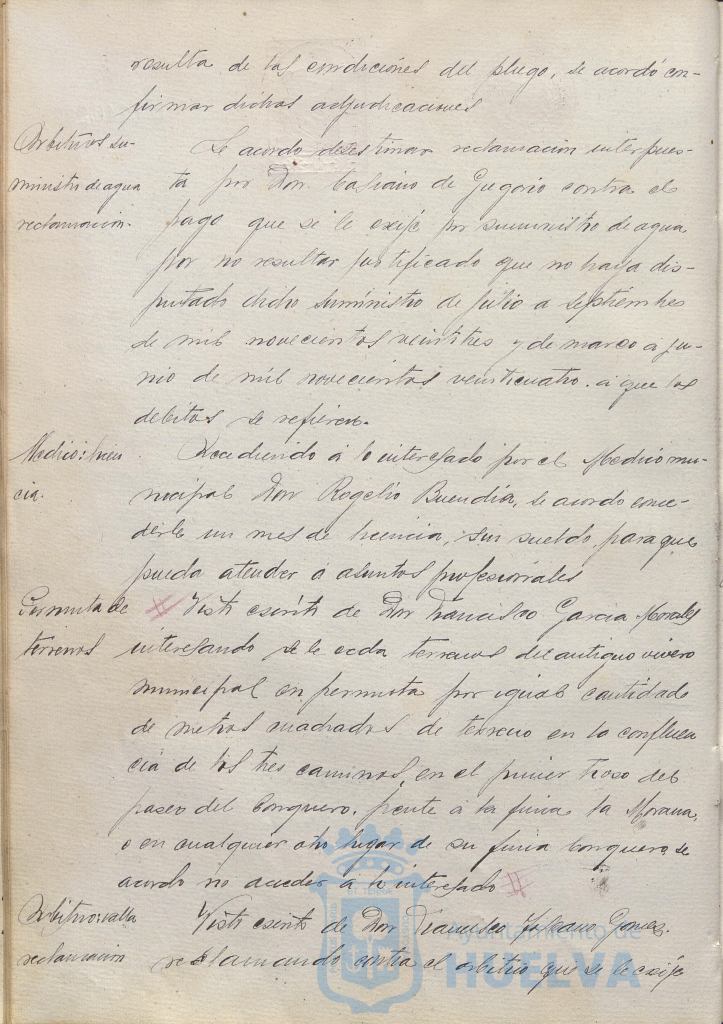 resulta de las condiciones del pliego, se acordó con-
firmar dichas adjudicaciones
Arbitrios su-
ministro de agua
reclamación.
Se acordo desestimar reclamación interpues-
ta por Don Casiano de Gregorio contra el
pago que se le exije por suministro de agua
por no resultar justificado que no haya dis-
frutado dicho suministro de julio a septiembre
de mil novecientos veintitres y de marzo á ju-
nio de mil novecientos veinticuatro. á que los
debitos se refieren.
Medico: licen
cia.
Accediendo á lo interesado por el Medico mu-
nicipal Don Rogelio Buendia, se acordo conce-
derle un mes de licencia, sin sueldo, para que
pueda atender á asuntos profesionales
Permuta de
terrenos
Visto escrito de Don Francisco Garcia Morales
interesando se le ceda terrenos del antiguo vivero
municipal en permuta por igual cantidad
de metros cuadrados de terreno en la confluen
cia de los tres caminos, en el primer trozo del
paseo del Conquero, frente á la finca la Morana,
o en cualquier otro lugar de su finca Conquero, se
acordo no acceder á lo interesado
Arbitrio: valla
reclamación
Visto escrito de Don Francisco Gomez,
reclamando contra el arbitrio que se le exije
Ayuntamiento de
HUELVA